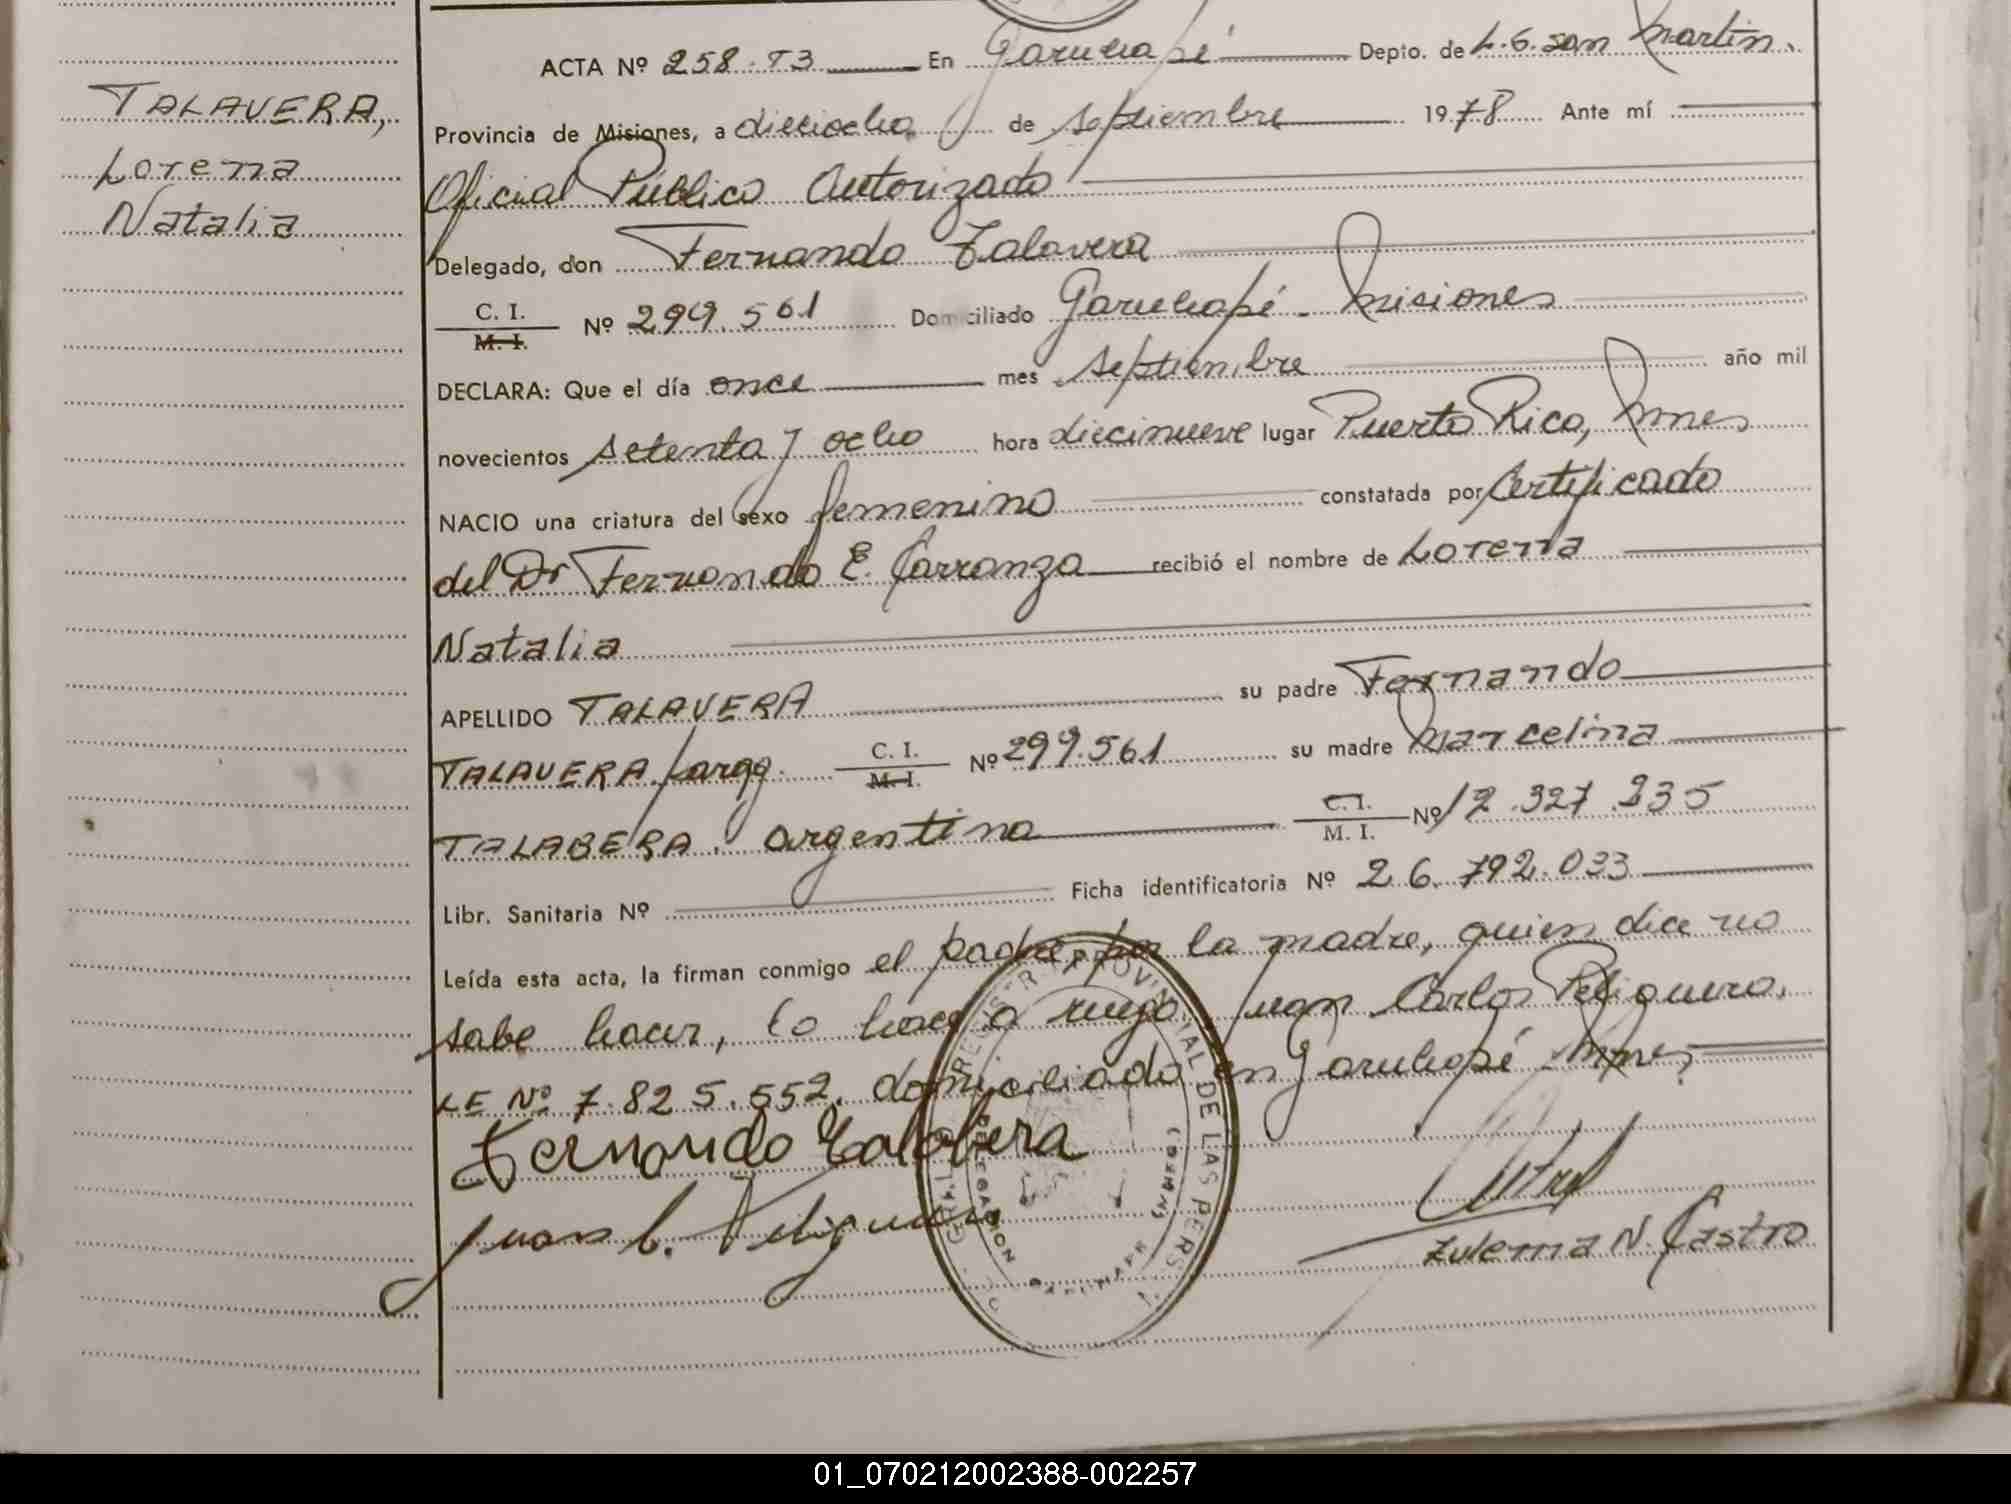 TALAVERA,
Lorena
Natalia
ACTA Nº 258.T3 En Garuhapé Depto. de L.G. San Martin.
Provincia de Misiones, a dieciocho de septiembre 1978 Ante mí
Oficial Público Autorizado
Delegado, don Fernando Talavera
C. I.
M. I. Nº 299.561 Domiciliado Garuhapé - Misiones
DECLARA: Que el día once mes septiembre año mil
novecientos setenta y ocho hora diecinueve lugar Puerto Rico, Mnes
NACIO una criatura del sexo femenino constatada por Certificado
del Dr Fernando E. Carranza recibió el nombre de Lorena
Natalia
APELLIDO TALAVERA su padre Fernando
TALAVERA, parag. C. I.
M. I. Nº 299.561 su madre Marcelina
TALABERA. argentina C. I.
M. I. Nº 12.327.235
Libr. Sanitaria Nº Ficha identificatoria Nº 26.792.033
Leída esta acta, la firman conmigo el padre, por la madre, quien dice no
sabe hacer, lo hace a ruego Juan Carlos Peliquero.
LE Nº 7.825.552. domiciliado en Garuhapé - Mnes
Fernando Talabera
Juan C.
Zulema N. Castro
REGISTRO PROVINCIAL DE LAS PERS.
DELEGACION
01_070212002388-002257